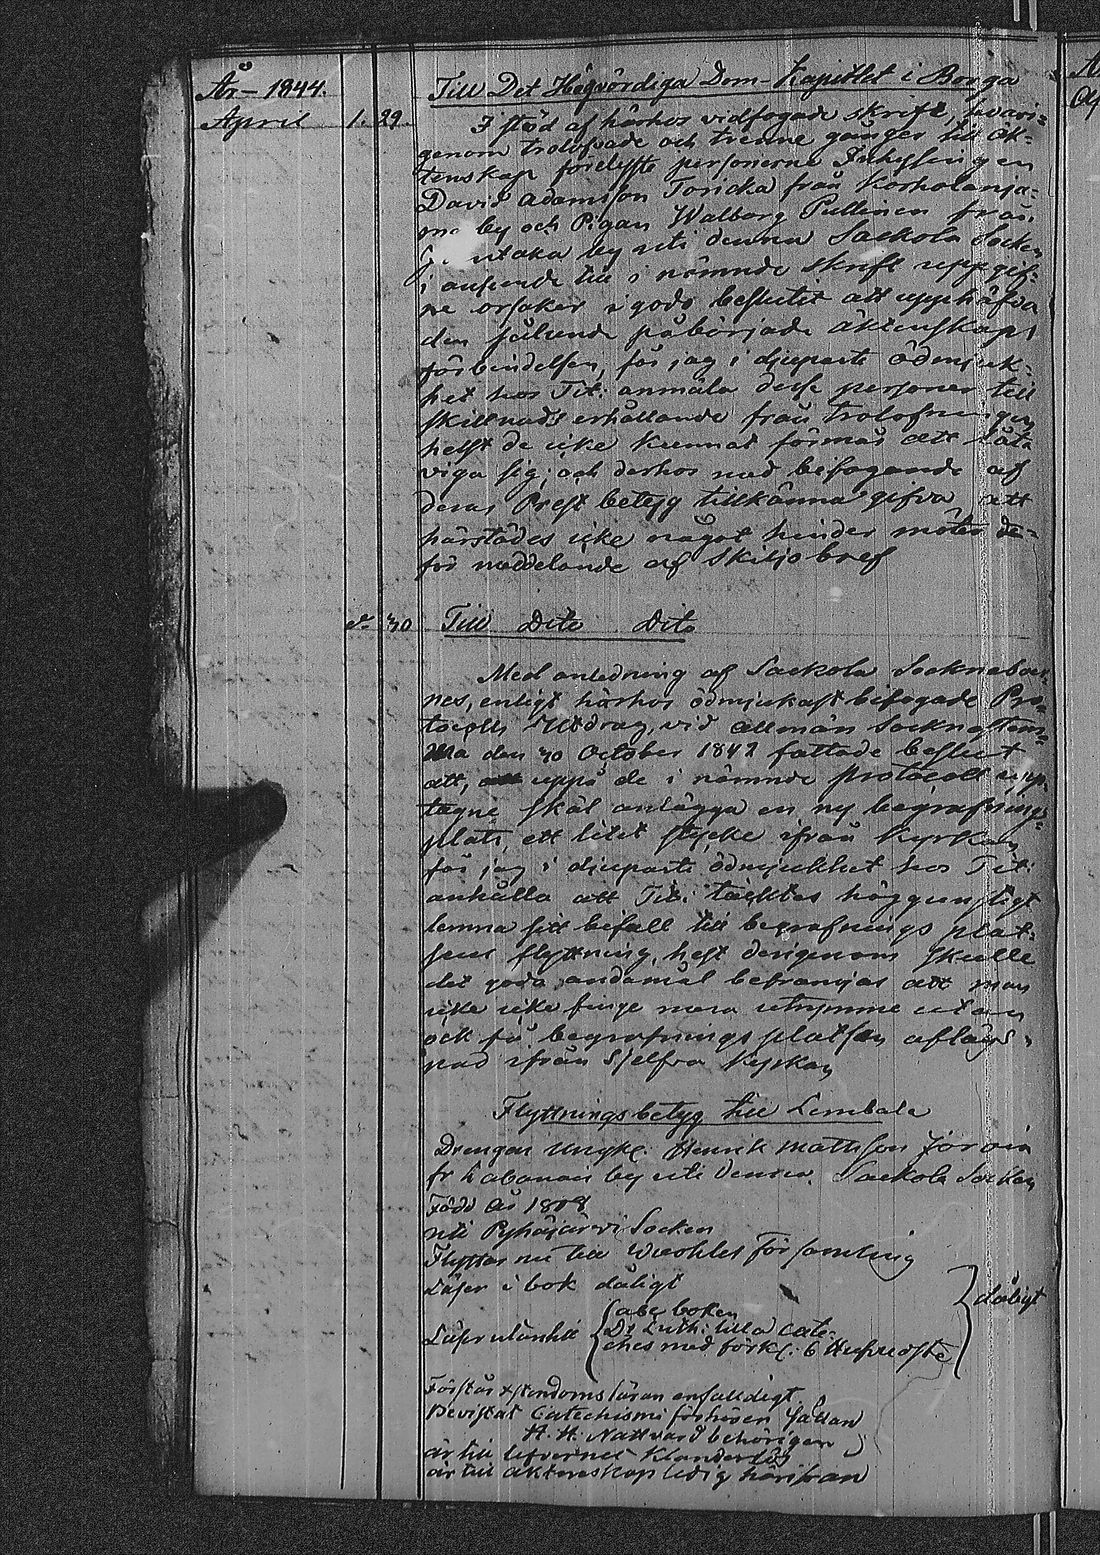 År 1844.
Till Det Högvördiga Dom-Kapitlet i Borgå
April 1. 29.
I stöd af härhos vidfogade skrift, hvari-
genom trolofvade och trenne gånger till äk-
tenskap förelyste personerne Inhysingen
David Adamsson Toricka från Korholanja-
ma by och Pigan Walborg Pullinen från
by uti denna Sackola Socken
i anseende till i nämnde skrift uppgif-
ne orsaker i godo beslutit att upphäfva
den sålunde påbörjade äktenskaps
förbindelsen, får jag i djupaste ödmjuk-
het hos Tit: anmäla desse personer till
skillnads erhållande från trolofningen
helst de icke kunnat förmås att låta
viga sig; och derhos med bifogande af
deras Prest betyg tillkänna gifva att
härstädes icke något hinder möter de-
för meddelande af skiljobref
d. 30 Till Dito Dito
Med anledning af Sackola Sockneboer-
nes, enligt härhos ödmjukast bifogade Pro-
tocolls Utdrag, vid allmän Socknestäm-
ma den 30 October 1842 fattade beslut
att, uppå de i nämnde protocoll upp-
tagne skäl anlägga en ny begrafnings-
plats, ett litet stycke ifrån Kyrkan
får jag i djupaste ödmjukhet hos Tit:
anhålla att Tit: täcktes höggunstigt
lemna sitt bifall till begrafnings plat-
sens flyttning, helst derigenom skulle
det goda ändamål befrämjas att man
icke icke finge mera utrymme utan
ock få begrafnings platsen afläge-
nad ifrån sjelfva Kyrkan
Flyttningsbetyg till Lembala
Drengen Ungk. Henrik Mattsson Jörvin
fr Labanais by uti denna Sackola Socken
Född År 1808
uti Pyhäjärvi Socken
Flyttar nu till Wuohlet församling
Läser i bok dåligt
Läser utantill
abc boken
Dr Luth: lilla cate-
ches med förkl:
dåligt
Förstår Xstendoms läran enfalldigt
Bevistat Catechismi förhören sällan
H. H. Nattvard behörigen
är till lefvernet klanderlös
är till äktenskap ledig härifrån